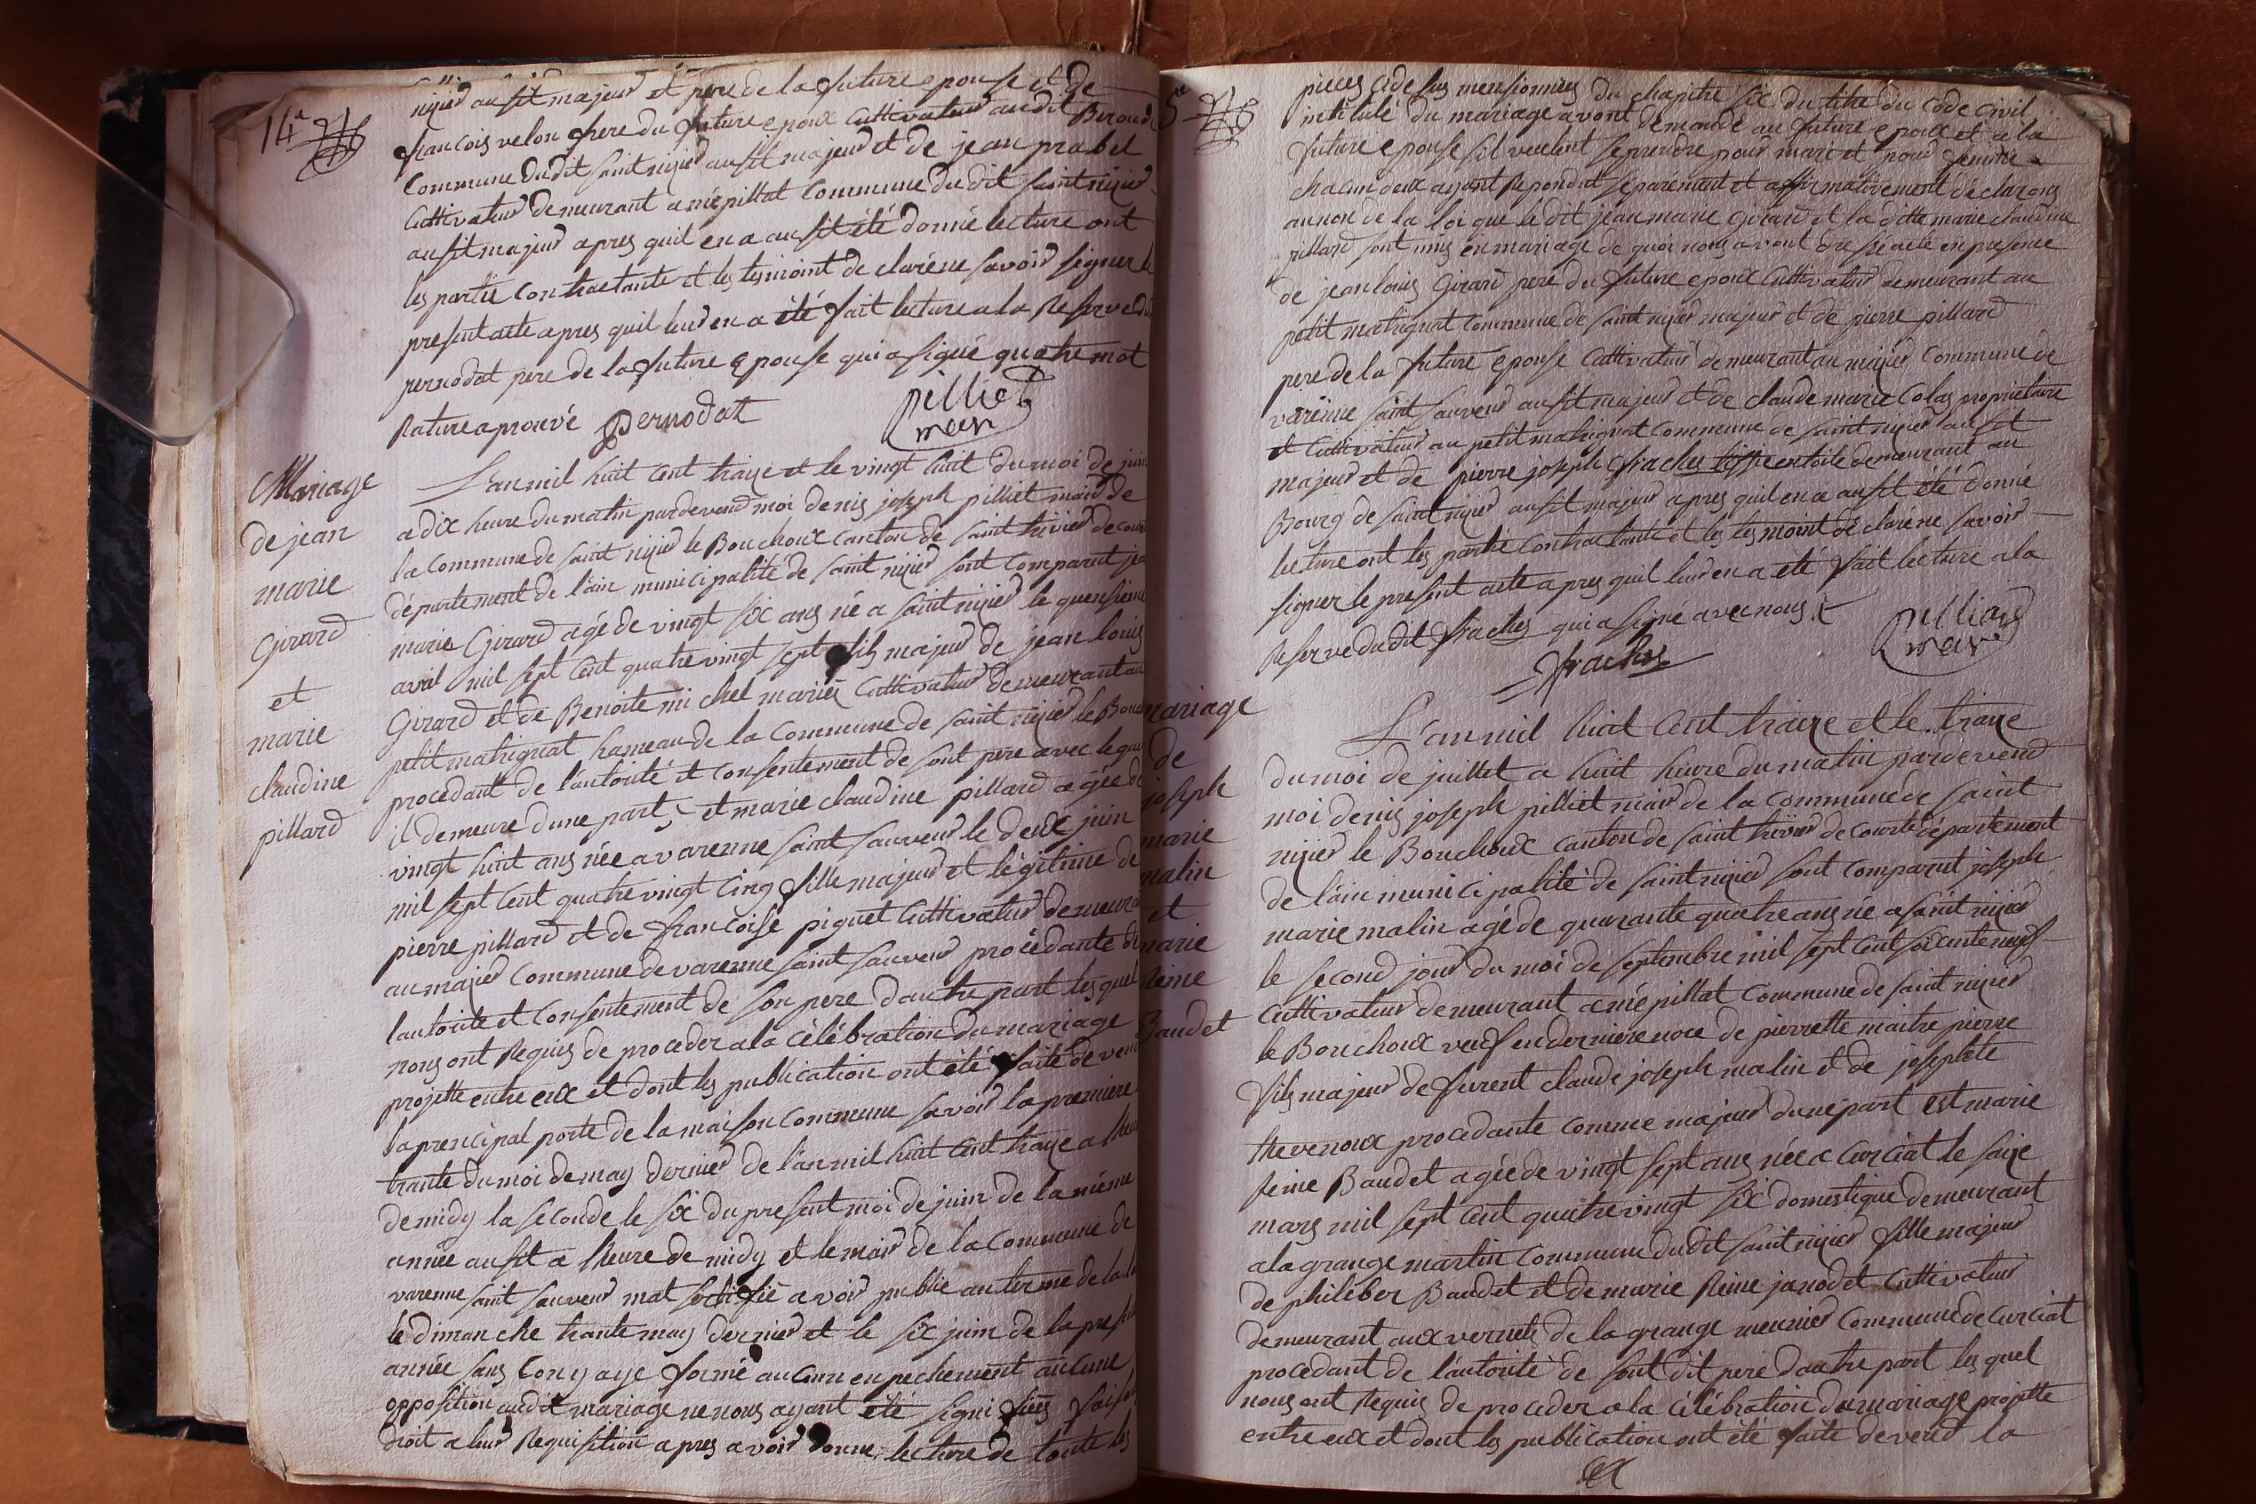 14e
nizier ausit majeur et pere de la future epouse et de
francois velon frere du future epoux cultivateur audit Beroud
commune dudit saint nizier ausit majeur et de jean prabel
cultivateur demeurant a mépillat commune du dit saint nizier
ausit majeur apres quil en a ausit été donné lecture ont
les partie contractante et les temoint declaréne savoir signer le
present acte apres quil leur en a été fait lecture a la Reserve du
pernodat pere de la future epouse qui a signé quatre mot
Rature aprouvé Pernodat pilliet
mair
Mariage
de jean
marie
Girard
et
marie
claudine
pillard
L'an mil huit cent traize et le vingt huit du moi de juin
a dix heure du matin pardevend moi denis joseph pilliet mair de
la commune de saint nizier le Bouchoux canton de saint trivier de cour
département de l'ain municipalité de saint nizier sont comparut jean
marie Girard agé de vingt six ans né a saint nizier le quensieme
avril mil sept cent quatre vingt sept fils majeur de jean louis
Girard et de Benoite michel mariés cultivateur demeurant au
petit matrignat hameau de la commune de saint nizier le Bouc
procedant de l'autorité et consentement de sont pere avec lequel
il demeure dune part, et marie claudine pillard agée de
vingt huit ans née a varenne saint sauveur le deux juin
mil sept cent quatre vingt cinq fille majeur et légitime de
pierre pillard et de francoise piguet cultivateur demeurant
au mazier commune de varenne saint sauveur procédante de
lautorite et consentement de son pere dautre part lesquel
nous ont Requis de proceder a la célébration du mariage
projette entre eux et dont les publication ont été faite devend
la prencipal porte de la maison commune savoir la premiere
trante du moi de may dernier de l'an mil huit cent traize a l'heure
de midy la seconde le six du present moi de juin de la méme
année ausit a l'heure de midy et le mair de la commune de
varenne saint sauveur mat sertifié avoir publié au terme de la loi
le dimanche trante may dernier et le six juin de la presente
année sans con y aye formé aucunn enpechement aucune
opposition audit mariage ne nous ayant été signifiées faisant
droit a leur Requisition apres avoir donné lecture de toute les
5e
pieces cidesus mensionnées du chapitre six du titre du code civil
intitulé du mariage avont demandé au future epoux et a la
future epouse sil veulent se prendre pour mari et pour femme
chacun deux ayant Repondut séparément et affirmativement déclarons
au non de la loi que le dit jean marie Girard et la ditte marie claudine
pillard sont unis en mariage de quoi nous avont dressé acte en presence
de jean louis Girard pere du future epoux cultivateur demeurant au
petit matrignat commune de saint nizier majeur et de pierre pillard
pere de la future epouse cultivateur demeurant au mazier commune de
varenne saint sauveur ausit majeur et de claude marie Colas proprietaire
et cultivateur au petit matrignat commune de saint nizier ausit
majeur et de pierre joseph fraches tissier en toile demeurant au
Bourg de saint nizier ausit majeur apres quil en a ausit été donné
lecture ont les partie contractante et les tesmoint déclaréne savoir
signer le present acte apres quil leur en a été fait lecture a la
Reserve dudit fraches qui a signé avec nous
fraches
pilliet
mair
mariage
de
joseph
marie
malin
et
marie
Reine
Baudet
L'an mil huit cent traize et le traize
du moi de juillet a huit heure du matin pardevend
moi denis joseph pilliet mair de la commune de saint
nizier le Bouchoux canton de saint trivier de courte département
de l'ain municipalité de saint nizier sont comparut joseph
marie malin agé de quarante quatre ans né a saint nizier
le second jour du moi de septembre mil sept cent soixante neuf
cultivateur demeurant a mépillat commune de saint nizier
le Bouchoux veuf en derniere noce de pierrette maitre pierre
fils majeur de furent claude joseph malin et de josephte
thevenoux procedante comme majeur dune part est marie
reine Baudet agée de vingt sept ans née a Curciat le saize
mars mil sept cent quatre vingt six domestique demeurant
a la grange martin commune dudit saint nizier fille majeur
de philiber Baudet et de marie Reine janodet cultivateur
demeurant aux vernets de la grange meunier commune de Curciat
procedant de l'autorité de sont dit pere dautre part lesquel
nous ont Requis de proceder a la célébration du mariage projette
entre eux et dont les publication ont été faite devend la